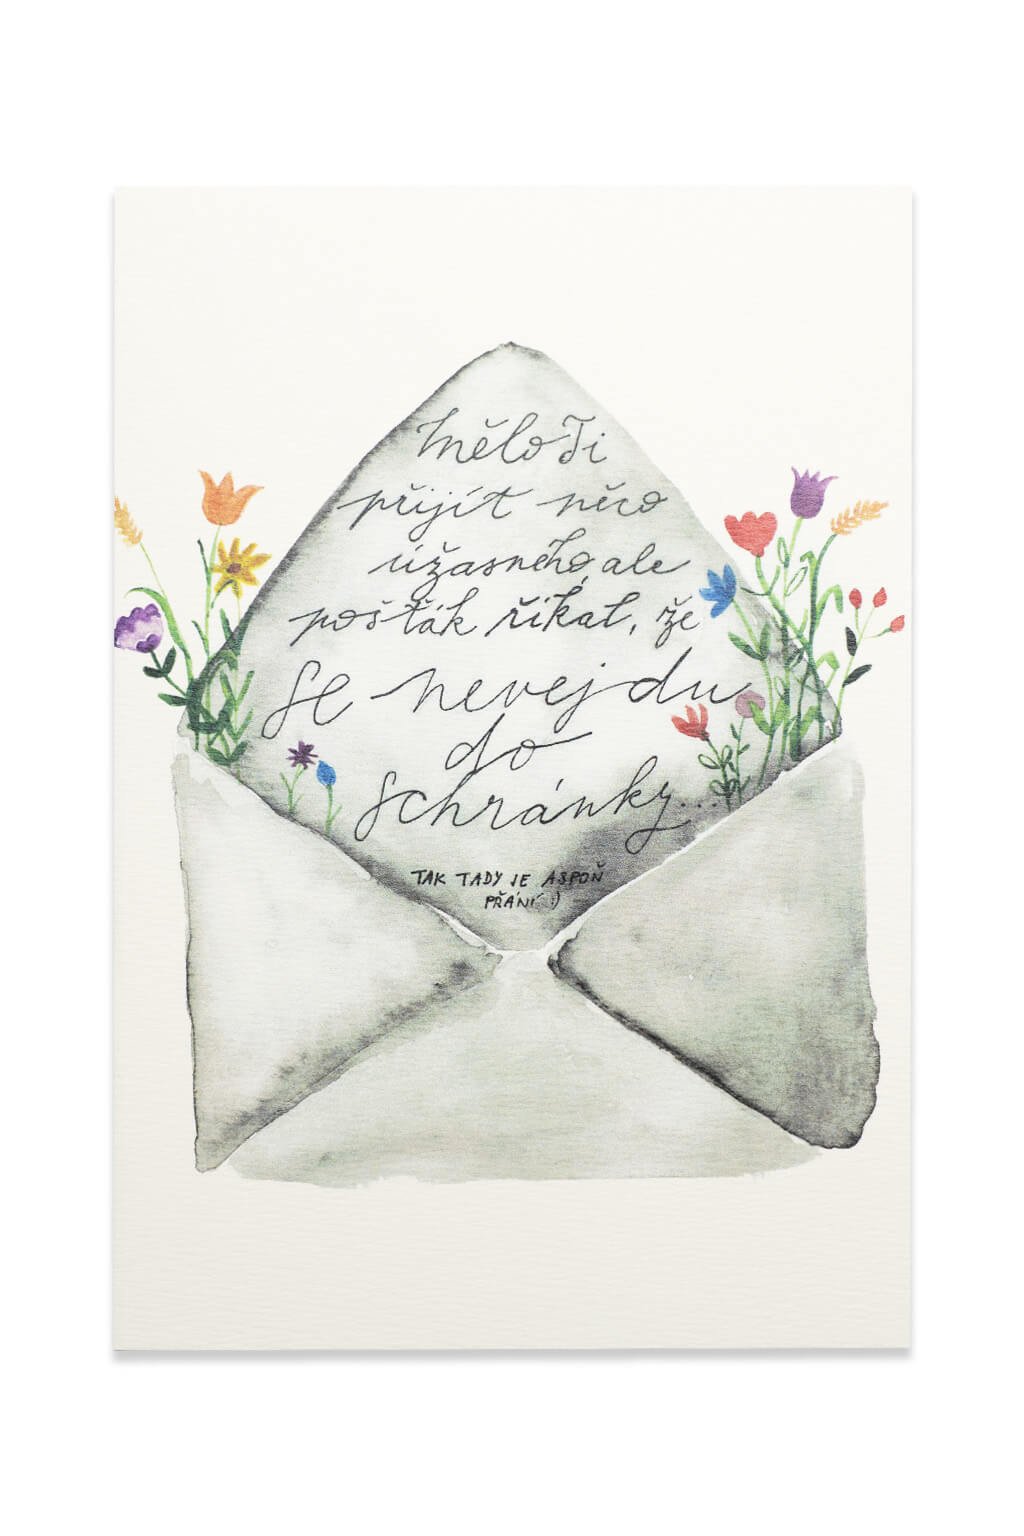 Mělo Ti
přijít něco
úžasného, ale
pošťák říkal, že
se nevejdu
do
schránky...
TAK TADY JE ASPOŇ
PŘÁNÍ :)